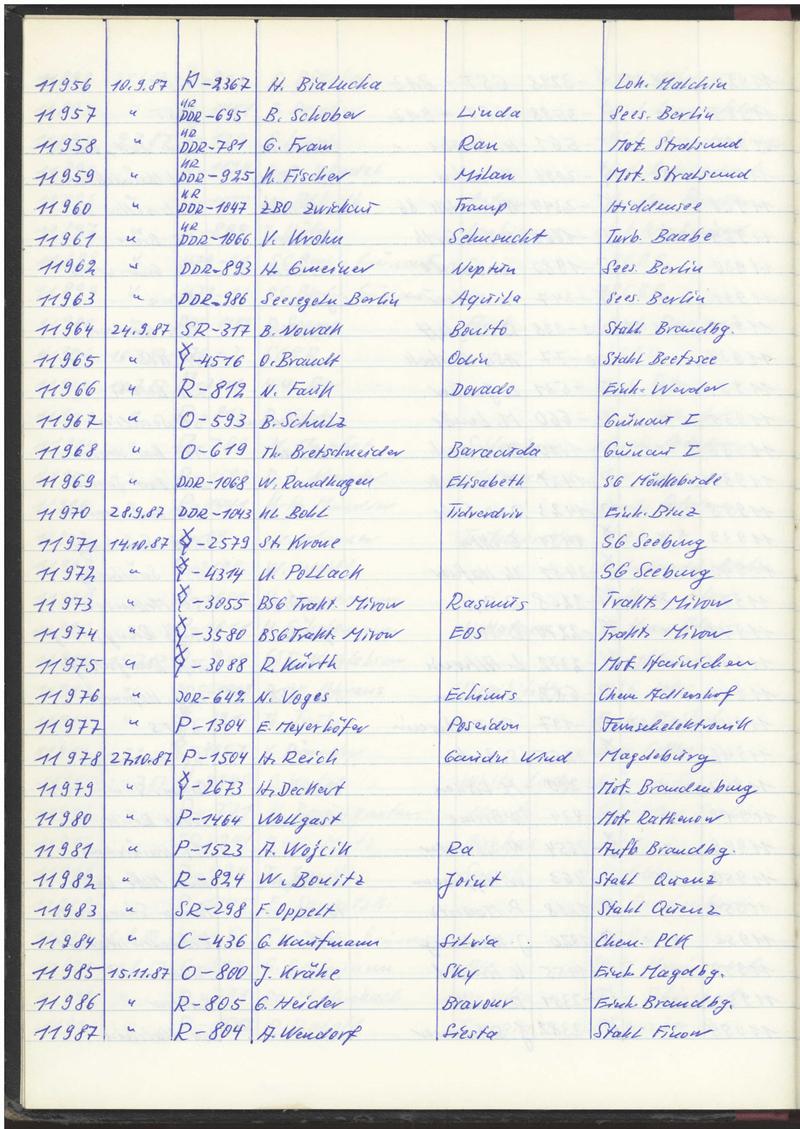 11956 10.9.87 -2367 H. Bialucha Lok. Malchin
11957 " KR DDR-695 B. Schober Linda Sees. Berlin
11958 " KR DDR-781 G. Fram Ran Mot. Stralsund
11959 " KR DDR-925 K. Fischer Milan Mot. Stralsund
11960 " KR DDR-1047 ZBO Zwickau Tramp Hiddensee
11961 " KR DDR-1066 V. Krohn Sehnsucht Turb. Baabe
11962 " DDR-893 H. Gmeiner Neptun Sees. Berlin
11963 " DDR-986 Seesegeln Berlin Aquila Sees. Berlin
11964 24.9.87 SR-317 B. Nowak Bonito Stahl Brandbg.
11965 " -4516 O. Brandt Odin Stahl Beetzsee
11966 " R-812 N. Faulk Dorado Einh. Werder
11967 " O-593 B. Schulz Grünau I
11968 " O-619 Th. Bretschneider Baracuda Grünau I
11969 " DDR-1068 W. Randhagen Elisabeth SG Mönkebude
11970 28.9.87 DDR-1043 Kl. Bohl Einh. Binz
11971 14.10.87 Y-2579 St. Krone SG Seeburg
11972 " Y-4314 U. Pollack SG Seeburg
11973 " Y-3055 BSG Trakt. Mirow Rasmus Trakt. Mirow
11974 " Y-3580 BSG Trakt. Mirow EOS Trakt. Mirow
11975 " Y-3088 R. Kürth Mot. Hainichen
11976 " DDR-642 N. Voges Echinus Chem. Adlershof
11977 " P-1304 E. Meyerhöfer Poseidon Fernsehelektronik
11978 27.10.87 P-1504 H. Reich Wind Magdeburg
11979 " Y-2673 H. Deckert Mot. Brandenburg
11980 " P-1464 Wollgast Mot. Rathenow
11981 " P-1523 A. Wojcik Ra Aufb. Brandbg.
11982 " R-824 W. Bonitz Joint Stahl Quenz
11983 " SR-298 F. Oppelt Stahl Quenz
11984 " C-436 G. Kaufmann Silvia Chem. PCK
11985 15.11.87 O-800 J. Krähe Sky Einh. Magdbg.
11986 " R-805 G. Heider Bravour Einh. Brandbg.
11987 " R-804 A. Wendorf Siesta Stahl Finow